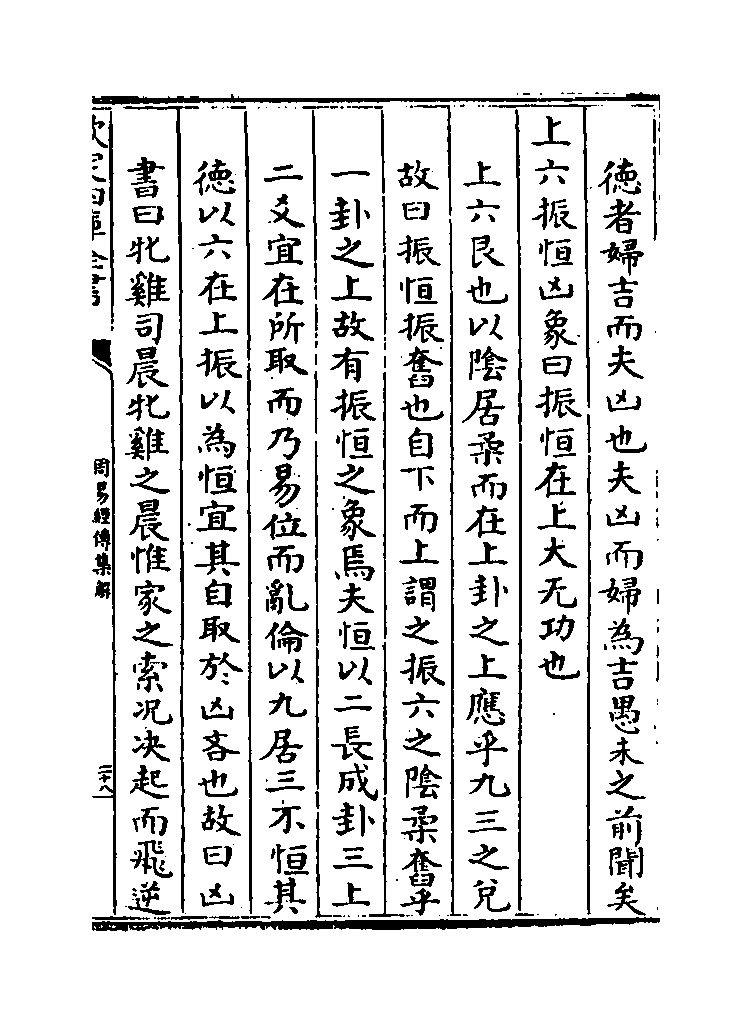 德者婦吉而夫凶也夫凶而婦為吉愚未之前聞矣
上六振恒凶象曰振恒在上大无功也
上六艮也以陰居柔而在上卦之上應乎九三之兌
故曰振恒振奮也自下而上謂之振六之陰柔奮乎
一卦之上故有振恒之象焉夫恒以二長成卦三上
二爻宜在所取而乃易位而亂倫以九居三不恒其
德以六在上振以為恒宜其自取於凶吝也故曰凶
書曰牝雞司晨牝雞之晨惟家之索况决起而飛逆
欽定四庫全書
周易經傳集解
二十八